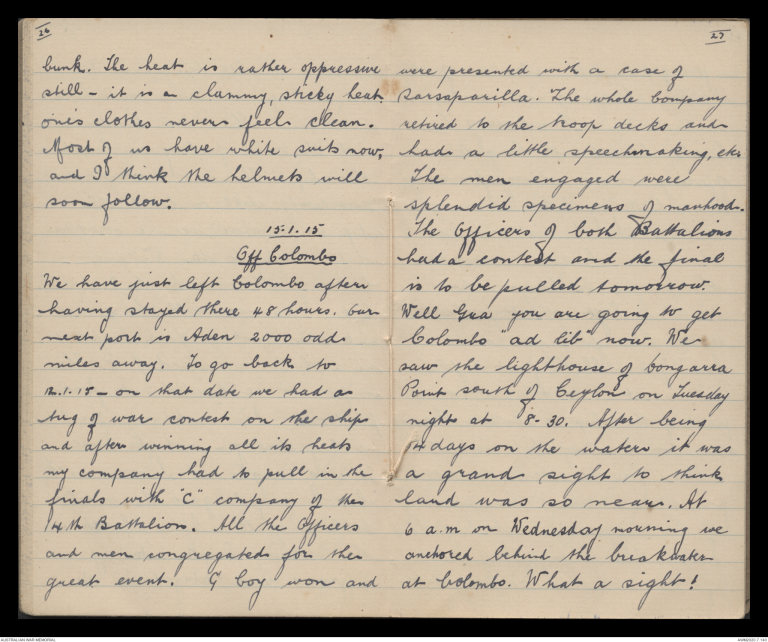 26
bunk. The heat is rather oppressive
still - it is a clammy, sticky heat
one's clothes never feel clean.
Most of us have white suits now,
and I think the helmets will
soon follow.
15.1.15
Off Colombo
We have just left Colombo after
having stayed there 48 hours. Our
next port is Aden 2000 odd
miles away. To go back to
12.1.15 - on that date we had a
tug of war contest on the ship
and after winning all its heats
my company had to pull in the
finals with "C" company of the
14th Battalion. All the Officers
and men congregated for the
great event. G Coy won and
27
were presented with a case of
Sarsaparilla. The whole Company
retired to the troop decks and
had a little speechmaking, etc.
The men engaged were
splendid specimens of manhood.
The Officers of both Battalions
had a contest and the final
is to be pulled tomorrow.
Well Gra you are going to get
Colombo "ad lib" now. We
saw the lighthouse of Dongarra
Point south of Ceylon on Tuesday
night at 8-30. After being
14 days on the water it was
a grand sight to think
land was so near. At
6 a.m on Wednesday morning we
anchored behind the breakwater
at Colombo. What a sight!
AUSTRALIAN WAR MEMORIAL